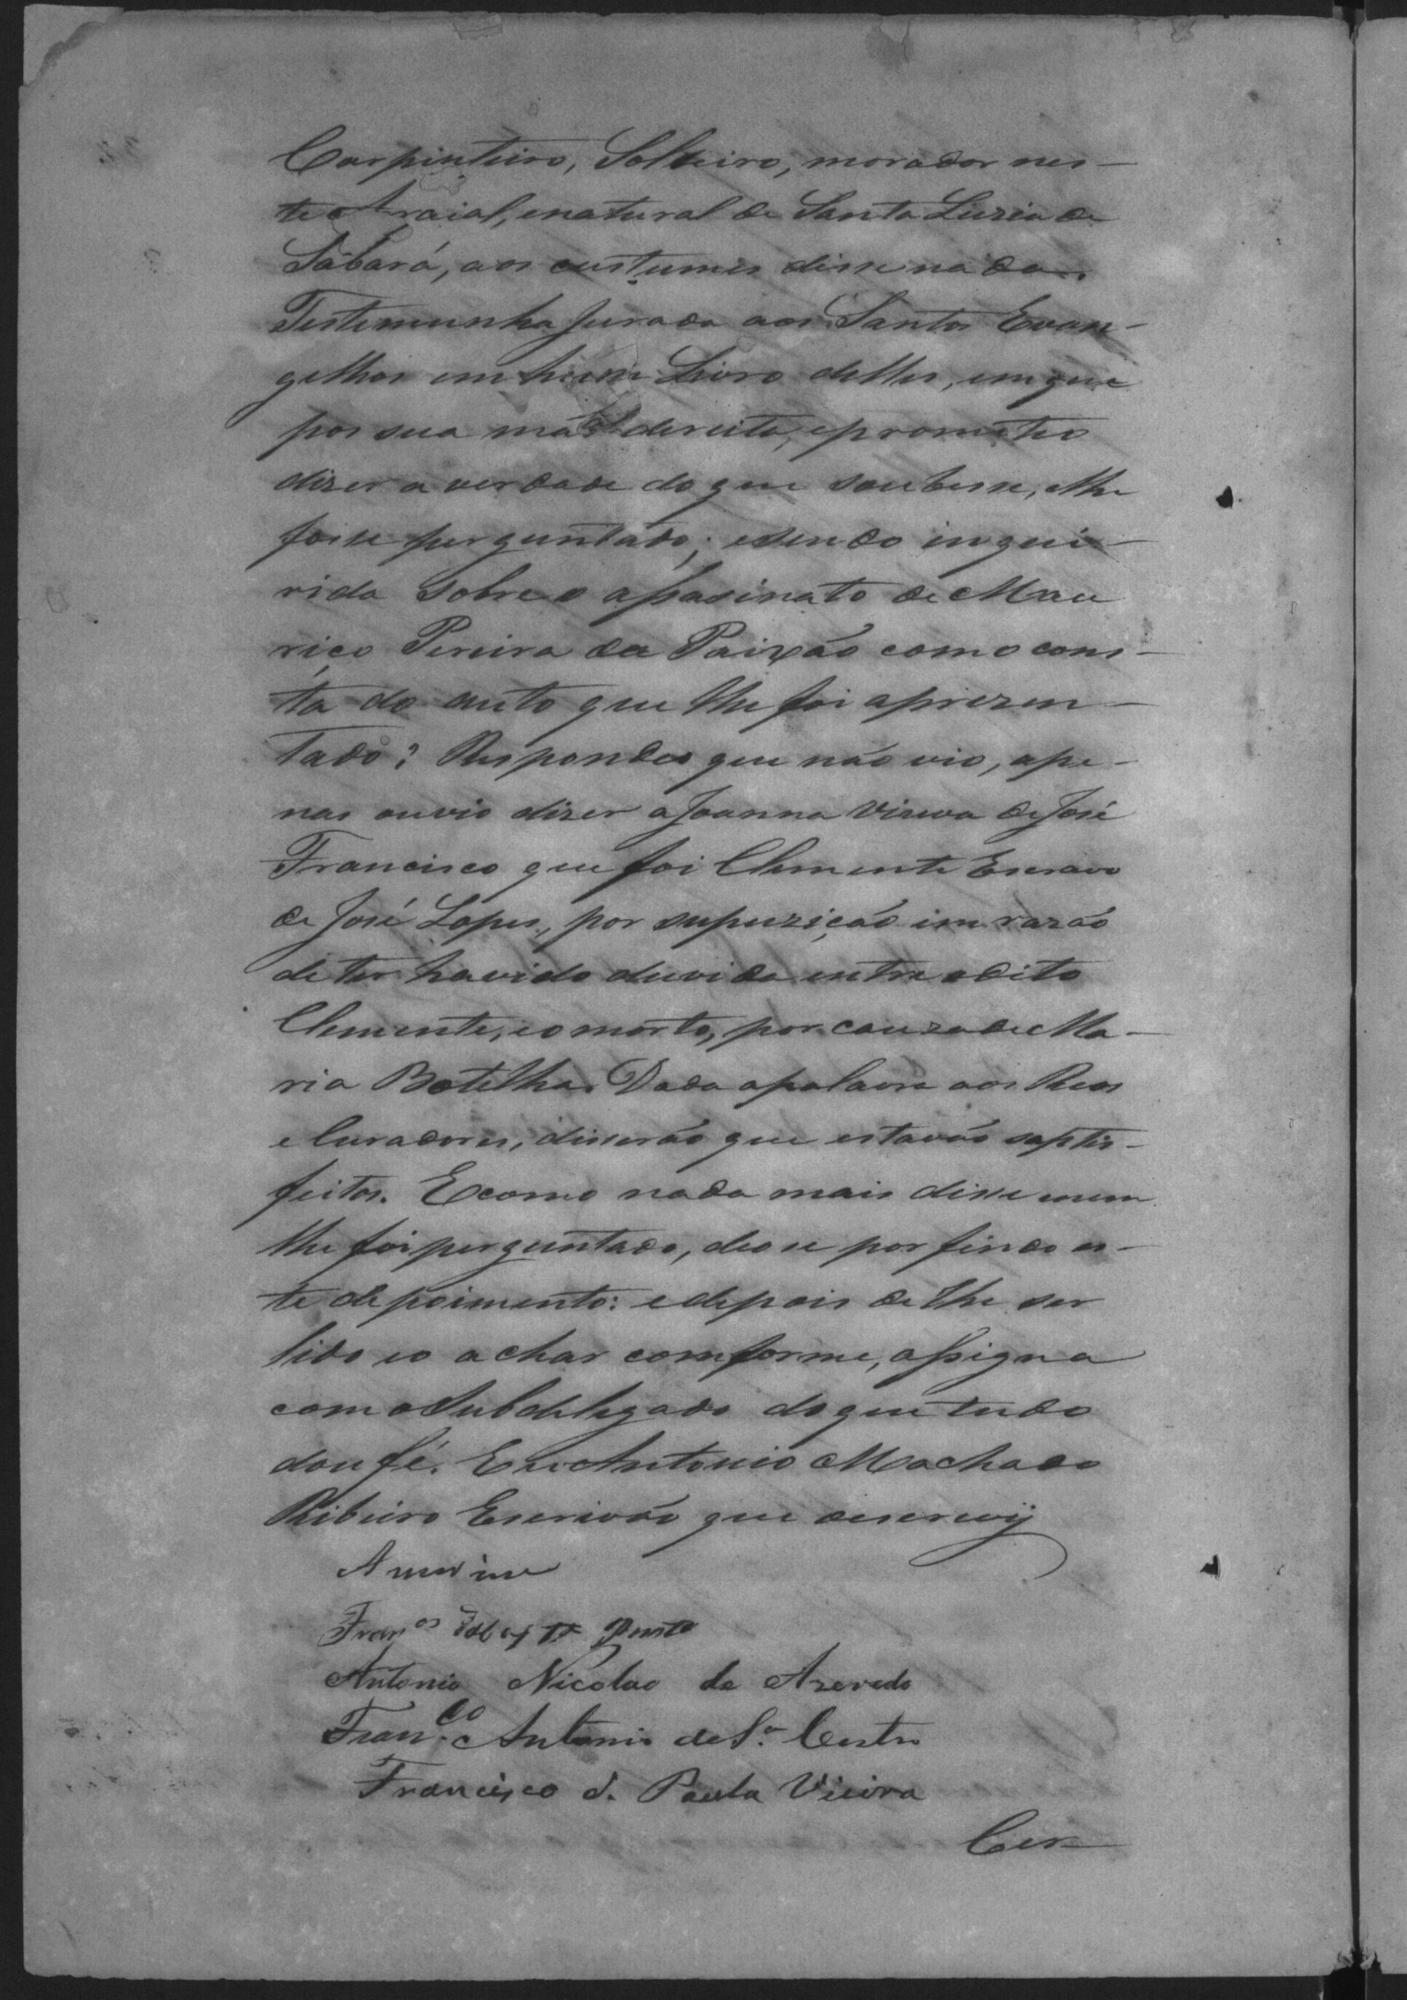 Carpinteiro, Solteiro, morador nes-
te Arraial, enatural de Santa Luzia de
Sabará, aos custumes disse nada.
Testemunha Jurada aos Santos Evan-
gelhos em hum Livro delles, emque
pos sua mão direita, eprometeo
dizer a verdade doque soubesse, elhe
fosse perguntado; esendo inqui-
rida sobre o assasinato de Mau
riço Pereira da Paixão como cons-
ta do auto que lhe foi aprezen-
tado? Respondeo que não vio, ape-
nas ouvio dizer a Joanna viuva de José
Francisco que foi Clemente Escravo
de José Lopes, por supuzição im razão
de ter havido duvida entre odito
Clemente, eo morto, por cauza de Ma-
ria Botelha. Dada apalavra aos Reos
e Curadores, disserão que estavão saptis-
feitos. Ecomo nada mais disse enem
lhe foi perguntado, deose por findo es-
te depoimento: edepois de lhe ser
lido eo achar comforme, assigna
com oSubdelegado doque tudo
dou fé. Eu Antonio Machado
Ribeiro Escrivão que oescrevij
Franco
Antonio Nicolao de Azevedo
Franco Antonio de S.a Castro
Francisco d. Paula Vieira
Cer